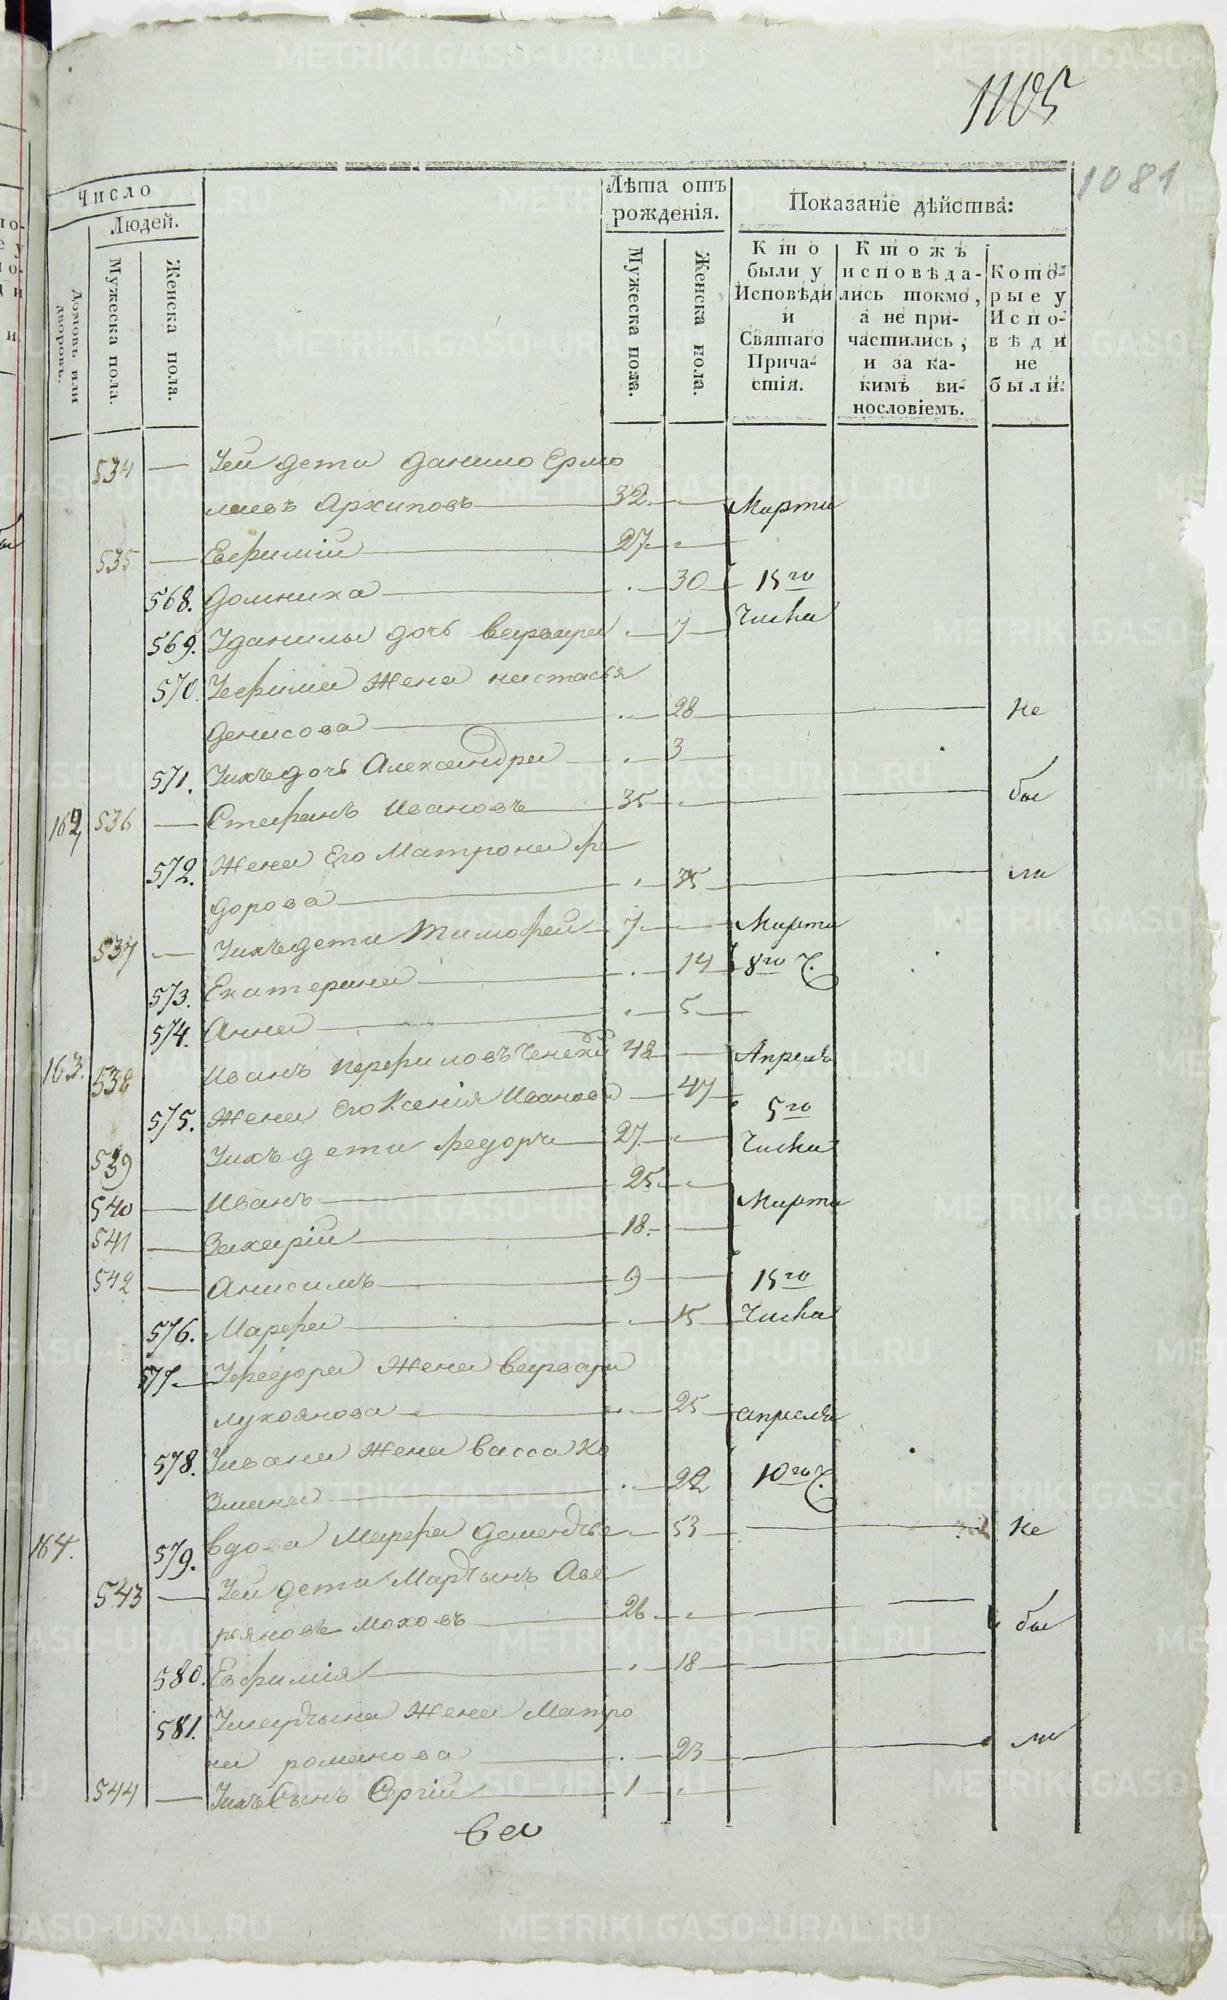 1105
1081
Число
Людей.
Домовъ или дворовъ.
Мужеска пола.
Женска пола.
Лѣта отъ рожденія.
Мужеска пола.
Женска пола.
Показаніе дѣйства:
Кто были у Исповѣди и Святаго Причастія.
Ктожъ исповѣдались токмо, а не причастились, и за какимъ винословіемъ.
Которые у Исповѣди не были.
534 — Уей дети данило Ермо
лаевъ Архиповъ — 32 — Марта
535 — Ефимій — 27
568. Домника — 30 15го
569. Уданилы дочь варвара 7 Числа
570. Уефима жена настасья
денисова — 28 — Не
571. Уихъ дочь Александра — 3
162 536 — Стефанъ Ивановъ — 35 — бы
572. Жена Его Матрона фе
дорова — 35 — ли
537 — Уихъ дети Тимофей — 7 — Марта
573. Екатерина — 14 8го ч.
574. Анна — 5
163. 538 Иванъ Перфиловъ 48 — Апреля
575. Жена Его Ксенія Иванова — 47 5го
539 Уихъ дети Федоръ — 27 Числа
540 — Иванъ — 25 Марта
541 — Захарій — 18
542 — Анисимъ — 9 — 15го
576. Марфа — 15 Числа
577 — Уфедора жена варвара
лукоянова — 25 — апреля
578. Уивана жена васса Ко
змина — 22 10го ч.
164. 579. вдова Марфа — 53 — Не
543 — Уей дети Мартынъ Аве
ряновъ Моховъ — 26 — бы
580. Евфимія — 18
581. Умартына жена Матро
на романова — 23 — ли
544 — Уихъ Сынъ Сергій — 1
METRIKI.GASO-URAL.RU